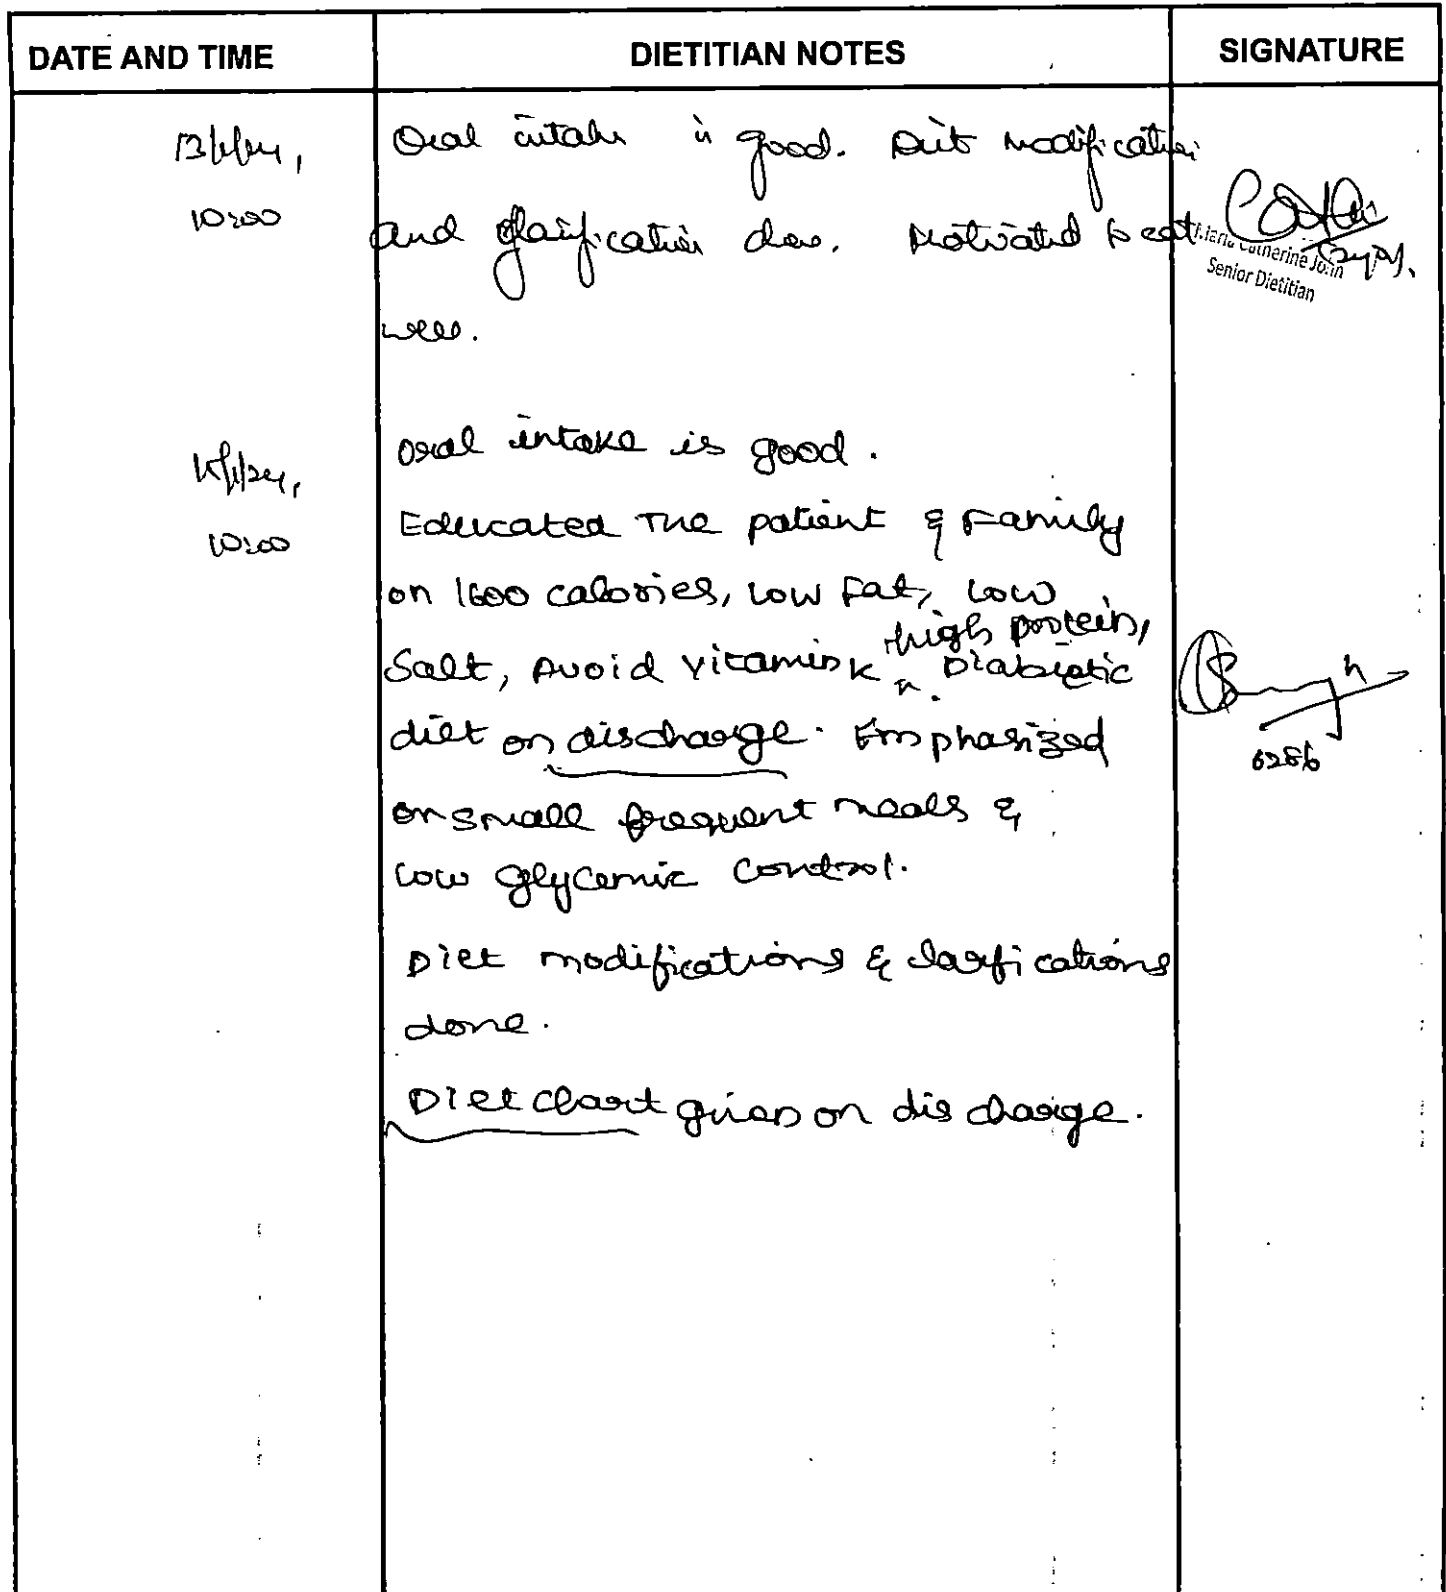 DATE AND TIME DIETITIAN NOTES SIGNATURE
13/1/24, Oral intake is good. Diet modification
10:00 and clarification done. Motivated to eat
Catherine John
Senior Dietitian
well.
Oral intake is good.
10:00 Educated The patient & Family
on 1600 calories, Low Fat, Low
high protein,
Salt, Avoid vitamin K Diabetic
diet on discharge. Emphasized
6286
on small frequent meals &
Low glycemic control.
Diet modifications & clarfications
done.
Diet chart given on discharge.